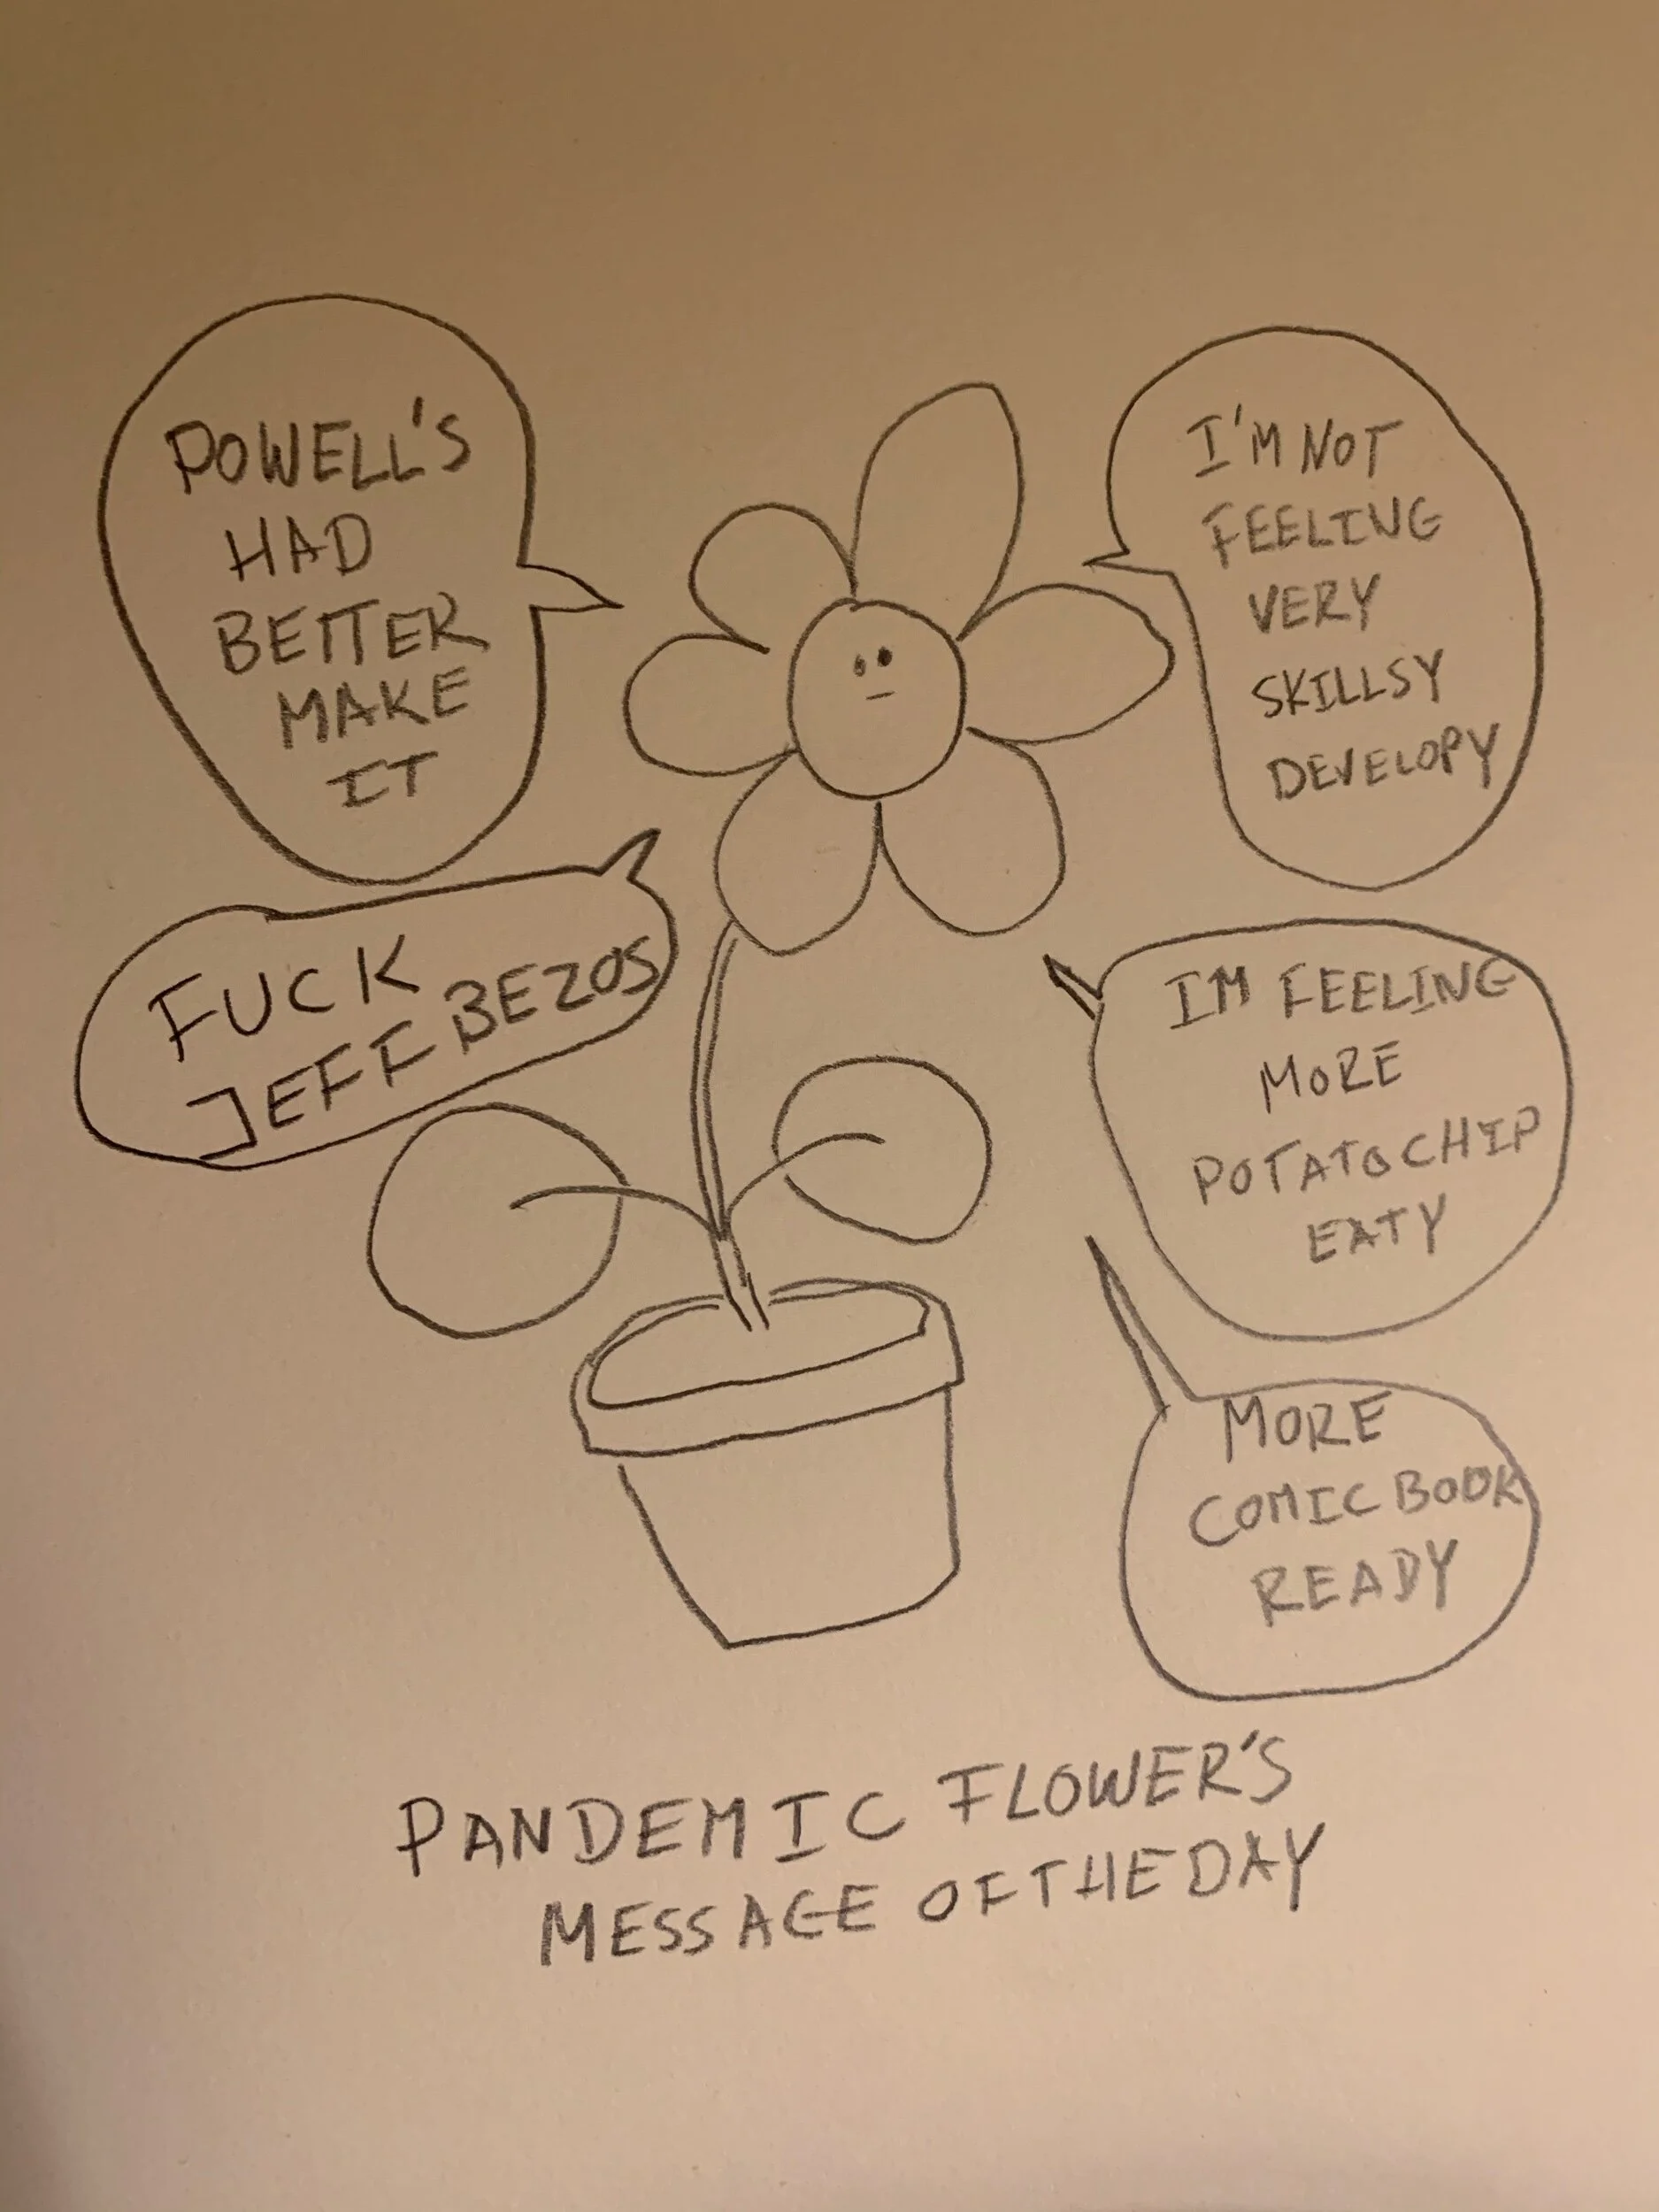 POWELL'S
HAD
BETTER
MAKE
IT
FUCK
JEFF BEZOS
I'M NOT
FEELING
VERY
SKILLSY
DEVELOPY
IM FEELING
MORE
POTATO CHIP
EATY
MORE
COMIC BOOK
READY
PANDEMIC FLOWER'S
MESSAGE OF THE DAY